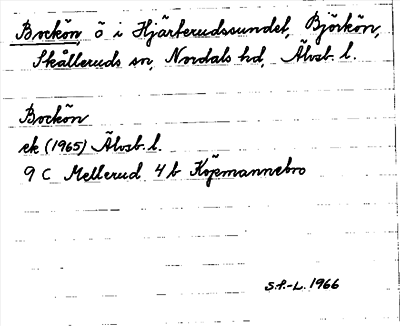 Bockön, ö i Hjärterudssundet, Björkön,
Skålleruds sn, Nordals hd, Älvsb. l.
Bockön
ek (1965) Älvsb. l.
9 C Mellerud 4 b Köpmannebro
S.F.-L. 1966